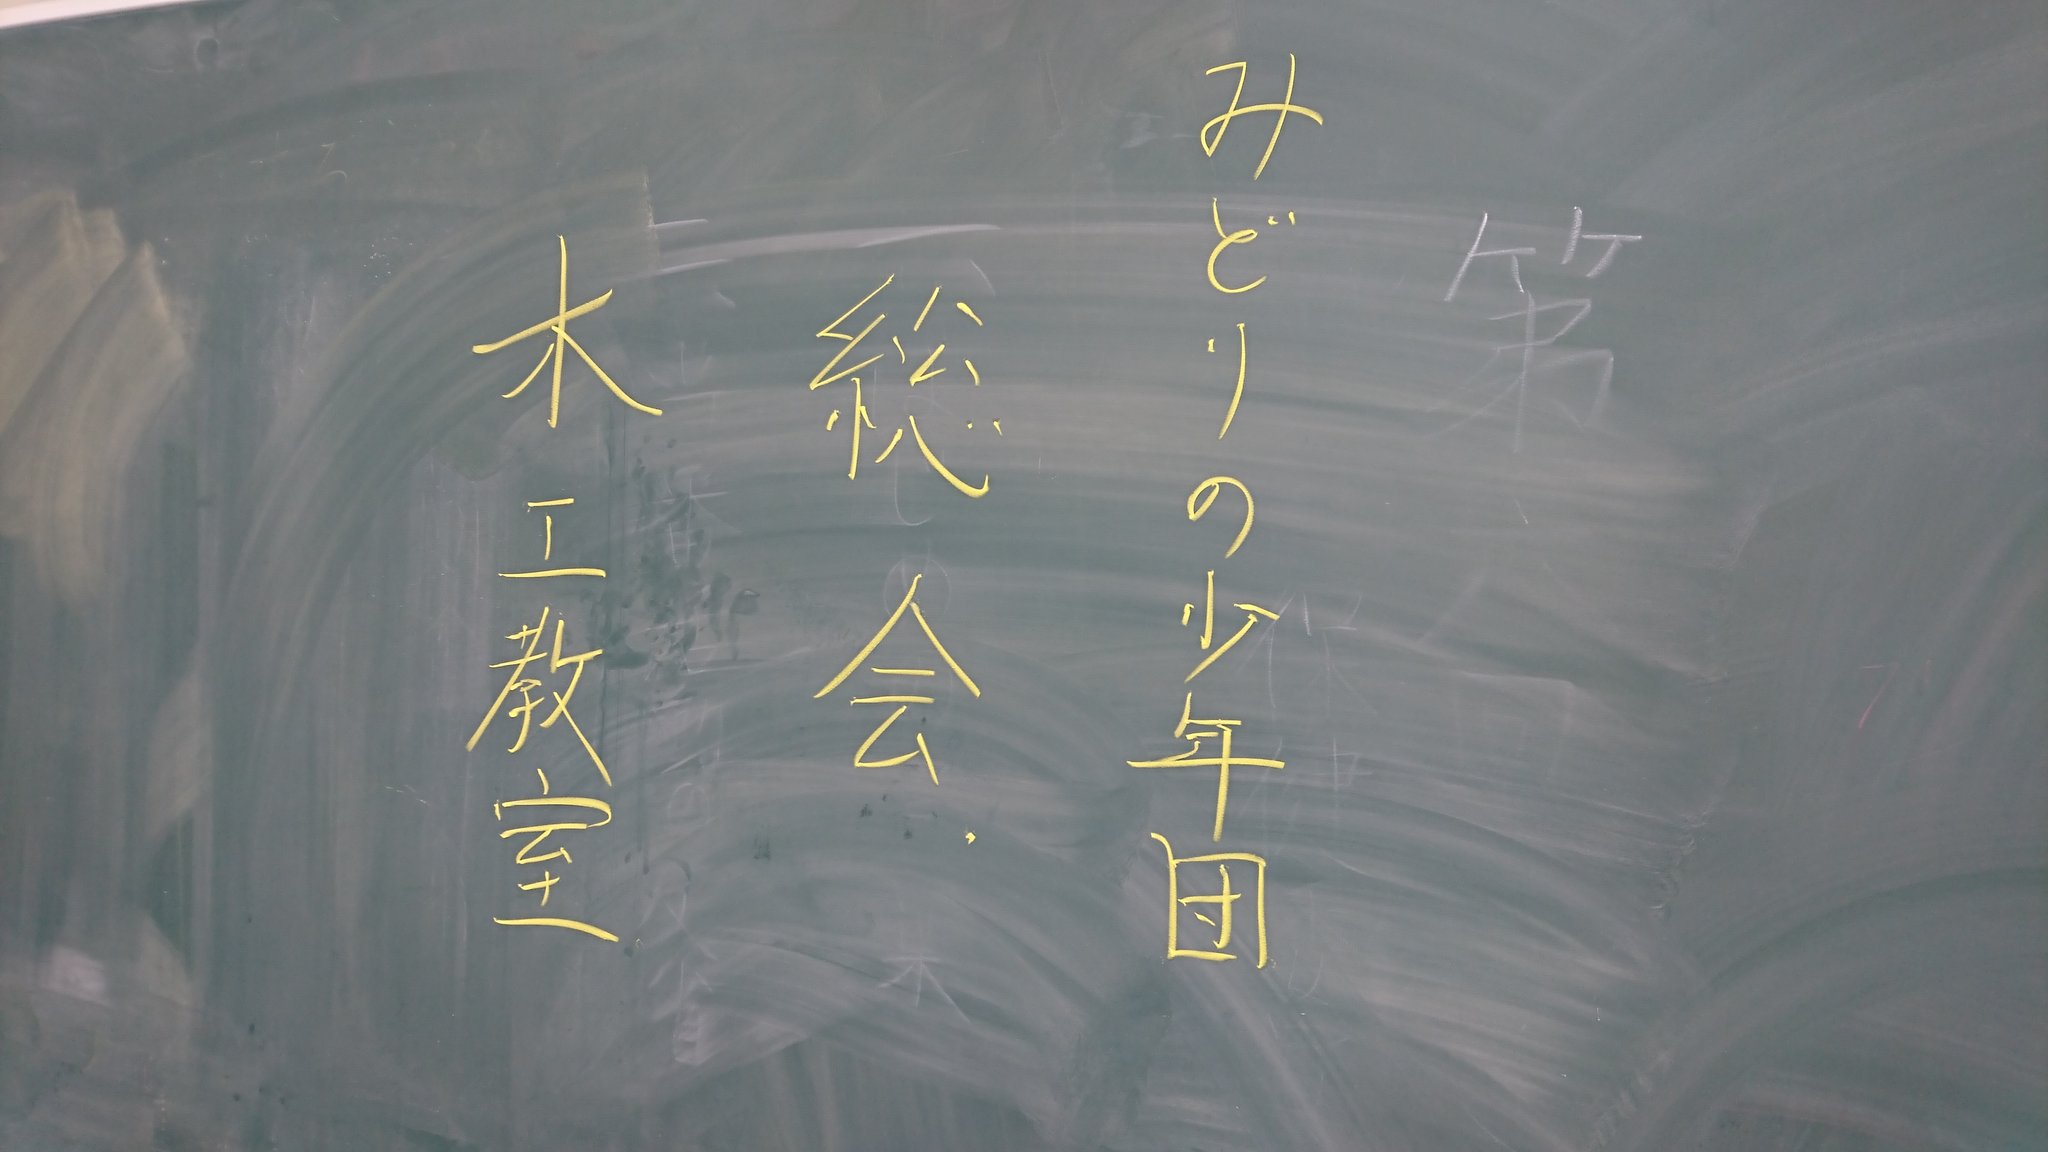 みどりの少年団
総会
木工教室